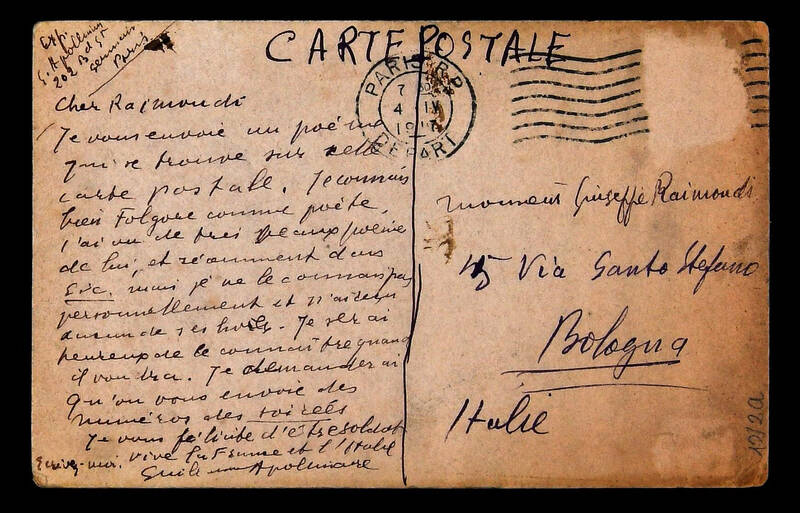 Exp.
G. Apollinaire
202 Bd St
Germain
Paris
CARTE POSTALE
PARIS R.P.
7
4 IX
DEPART
Cher Raimondi
Je vous envoie un poème
qui se trouve sur cette
carte postale. Je connais
bien Folgore comme poète,
j'ai vu de très beaux poèmes
de lui, et récemment dans
Sic. mais je ne le connais pas
personnellement et n'ai reçu
aucun de ses livres. Je serai
heureux de le connaître quand
il voudra. Je demanderai
qu'on vous envoie des
numéros des soirées
Je vous félicite d'être soldat
Ecrivez-moi. Vive la France et l'Italie
Guillaume Apollinaire
monsieur Giuseppe Raimondi
45 Via Santo Stefano
Bologna
Italie
1212a